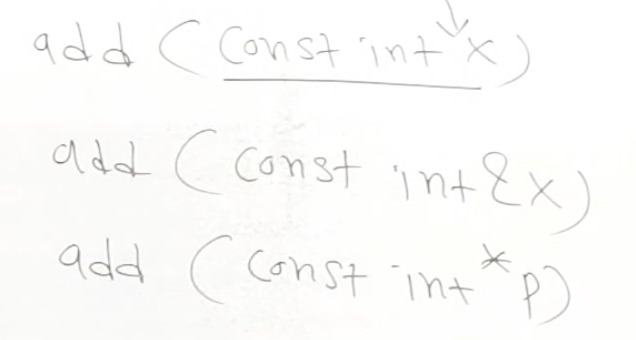 add (const int x)
add (const int &x)
add (const int *p)